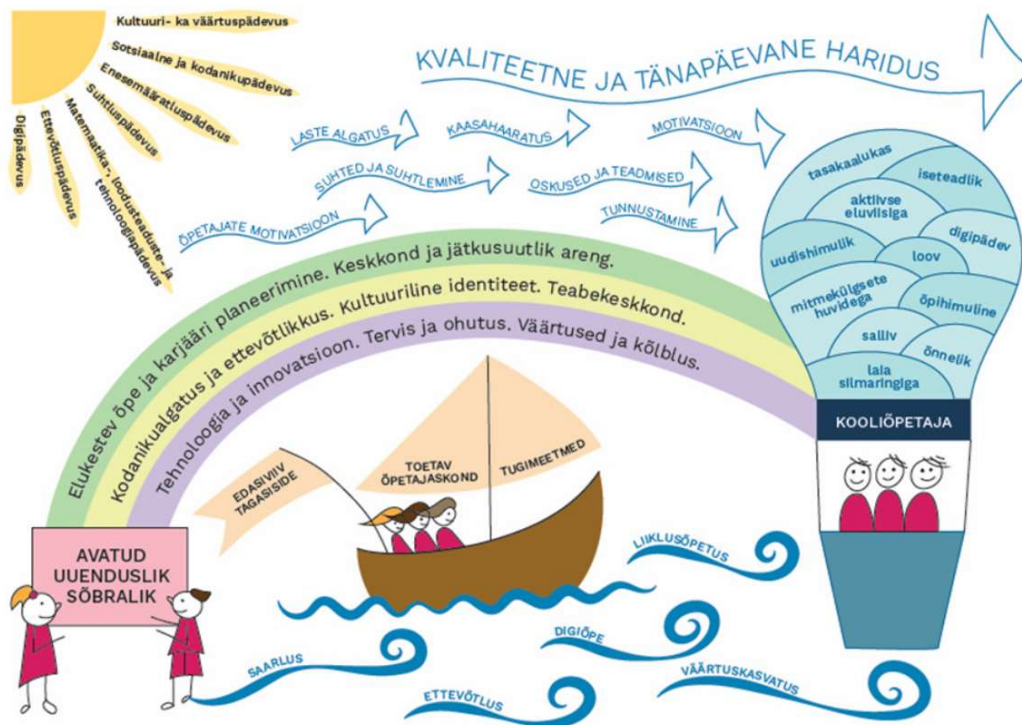 Kultuuri- ka väärtuspädevus
Sotsiaalne ja kodanikupädevus
Enesemääratluspädevus
Suhtluspädevus
Matemaatika-, loodusteaduste- ja
tehnoloogiapädevus
Ettevõtluspädevus
Digipädevus
KVALITEETNE JA TÄNAPÄEVANE HARIDUS
LASTE ALGATUS
KAASAHAARATUS
MOTIVATSIOON
SUHTED JA SUHTLEMINE
OSKUSED JA TEADMISED
ÕPETAJATE MOTIVATSIOON
TUNNUSTAMINE
tasakaalukas
iseteadlik
aktiivse
eluviisiga
digipädev
uudishimulik
loov
mitmekülgsete
huvidega
õpihimuline
salliv
õnnelik
laia
silmaringiga
KOOLIÕPETAJA
Elukestev õpe ja karjääri planeerimine. Keskkond ja jätkusuutlik areng.
Kodanikualgatus ja ettevõtlikkus. Kultuuriline identiteet. Teabekeskkond.
Tehnoloogia ja innovatsioon. Tervis ja ohutus. Väärtused ja kõlblus.
EDASIVIIV
TAGASISIDE
TOETAV
ÕPETAJASKOND
TUGIMEETMED
AVATUD
UUENDUSLIK
SÕBRALIK
LIIKLUSÕPETUS
DIGIÕPE
SAARLUS
VÄÄRTUSKASVATUS
ETTEVÕTLUS